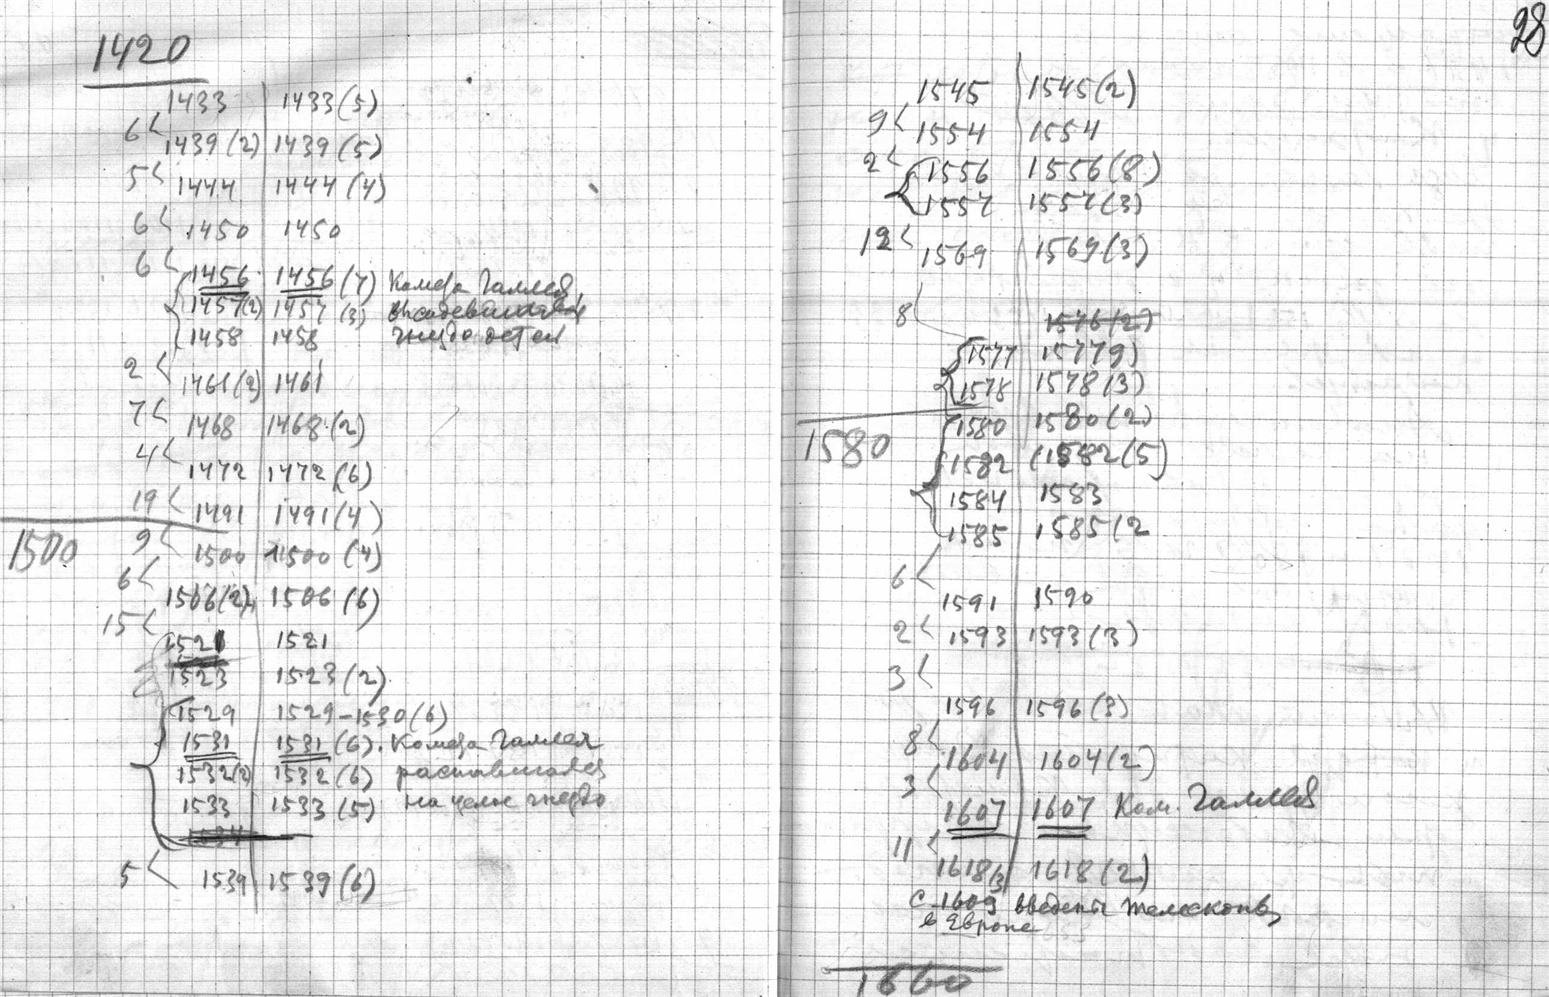 1420
1433 1433(5)
6<
1439(2) 1439(5)
5<
1444 1444(4)
6<
1450 1450
6<
1456 1456(7) Комета Галлея
1457(2) 1457(3)
1458 1458 гнездо
2<
1461(2) 1461
7<
1468 1468(2)
4<
1472 1472(6)
19<
1491 1491(4)
1500
9<
1500 1500(4)
6<
1506(2) 1506(6)
15<
1521 1521
1523 1523(2)
1529 1529-1530(6)
1531 1531(6). Комета Галлея
1532(2) 1532(6) распавшаяся
1533 1533(5) на целое гнездо
5<
1539 1539(6)
28
1545 1545(2)
9<
1554 1554
2<
1556 1556(8)
1557 1557(3)
12<
1569 1569(3)
8<
1576(2)
1577 1577
1578 1578(3)
1580
1580 1580(2)
1582 1582(5)
1584 1583
1585 1585(2
6<
1591 1590
2<
1593 1593(3)
3<
1596 1596(3)
8<
1604 1604(2)
3<
1607 1607 Ком. Галлея
11<
1618/3 1618(2)
С 1609 введены телескопы
в Европе
1660